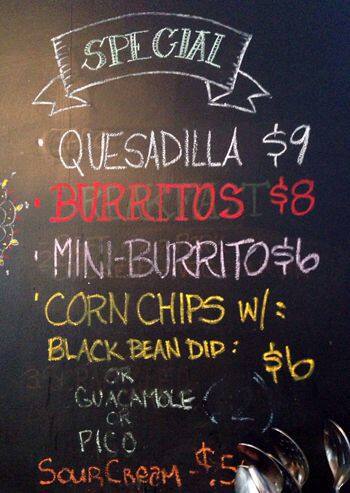 SPECIAL
· QUESADILLA $9
· BURRITOS $8
· MINI-BURRITO $6
· CORN CHIPS W/:
BLACK BEAN DIP: $6
OR
GUACAMOLE (2)
OR
PICO
SOUR CREAM - $.5